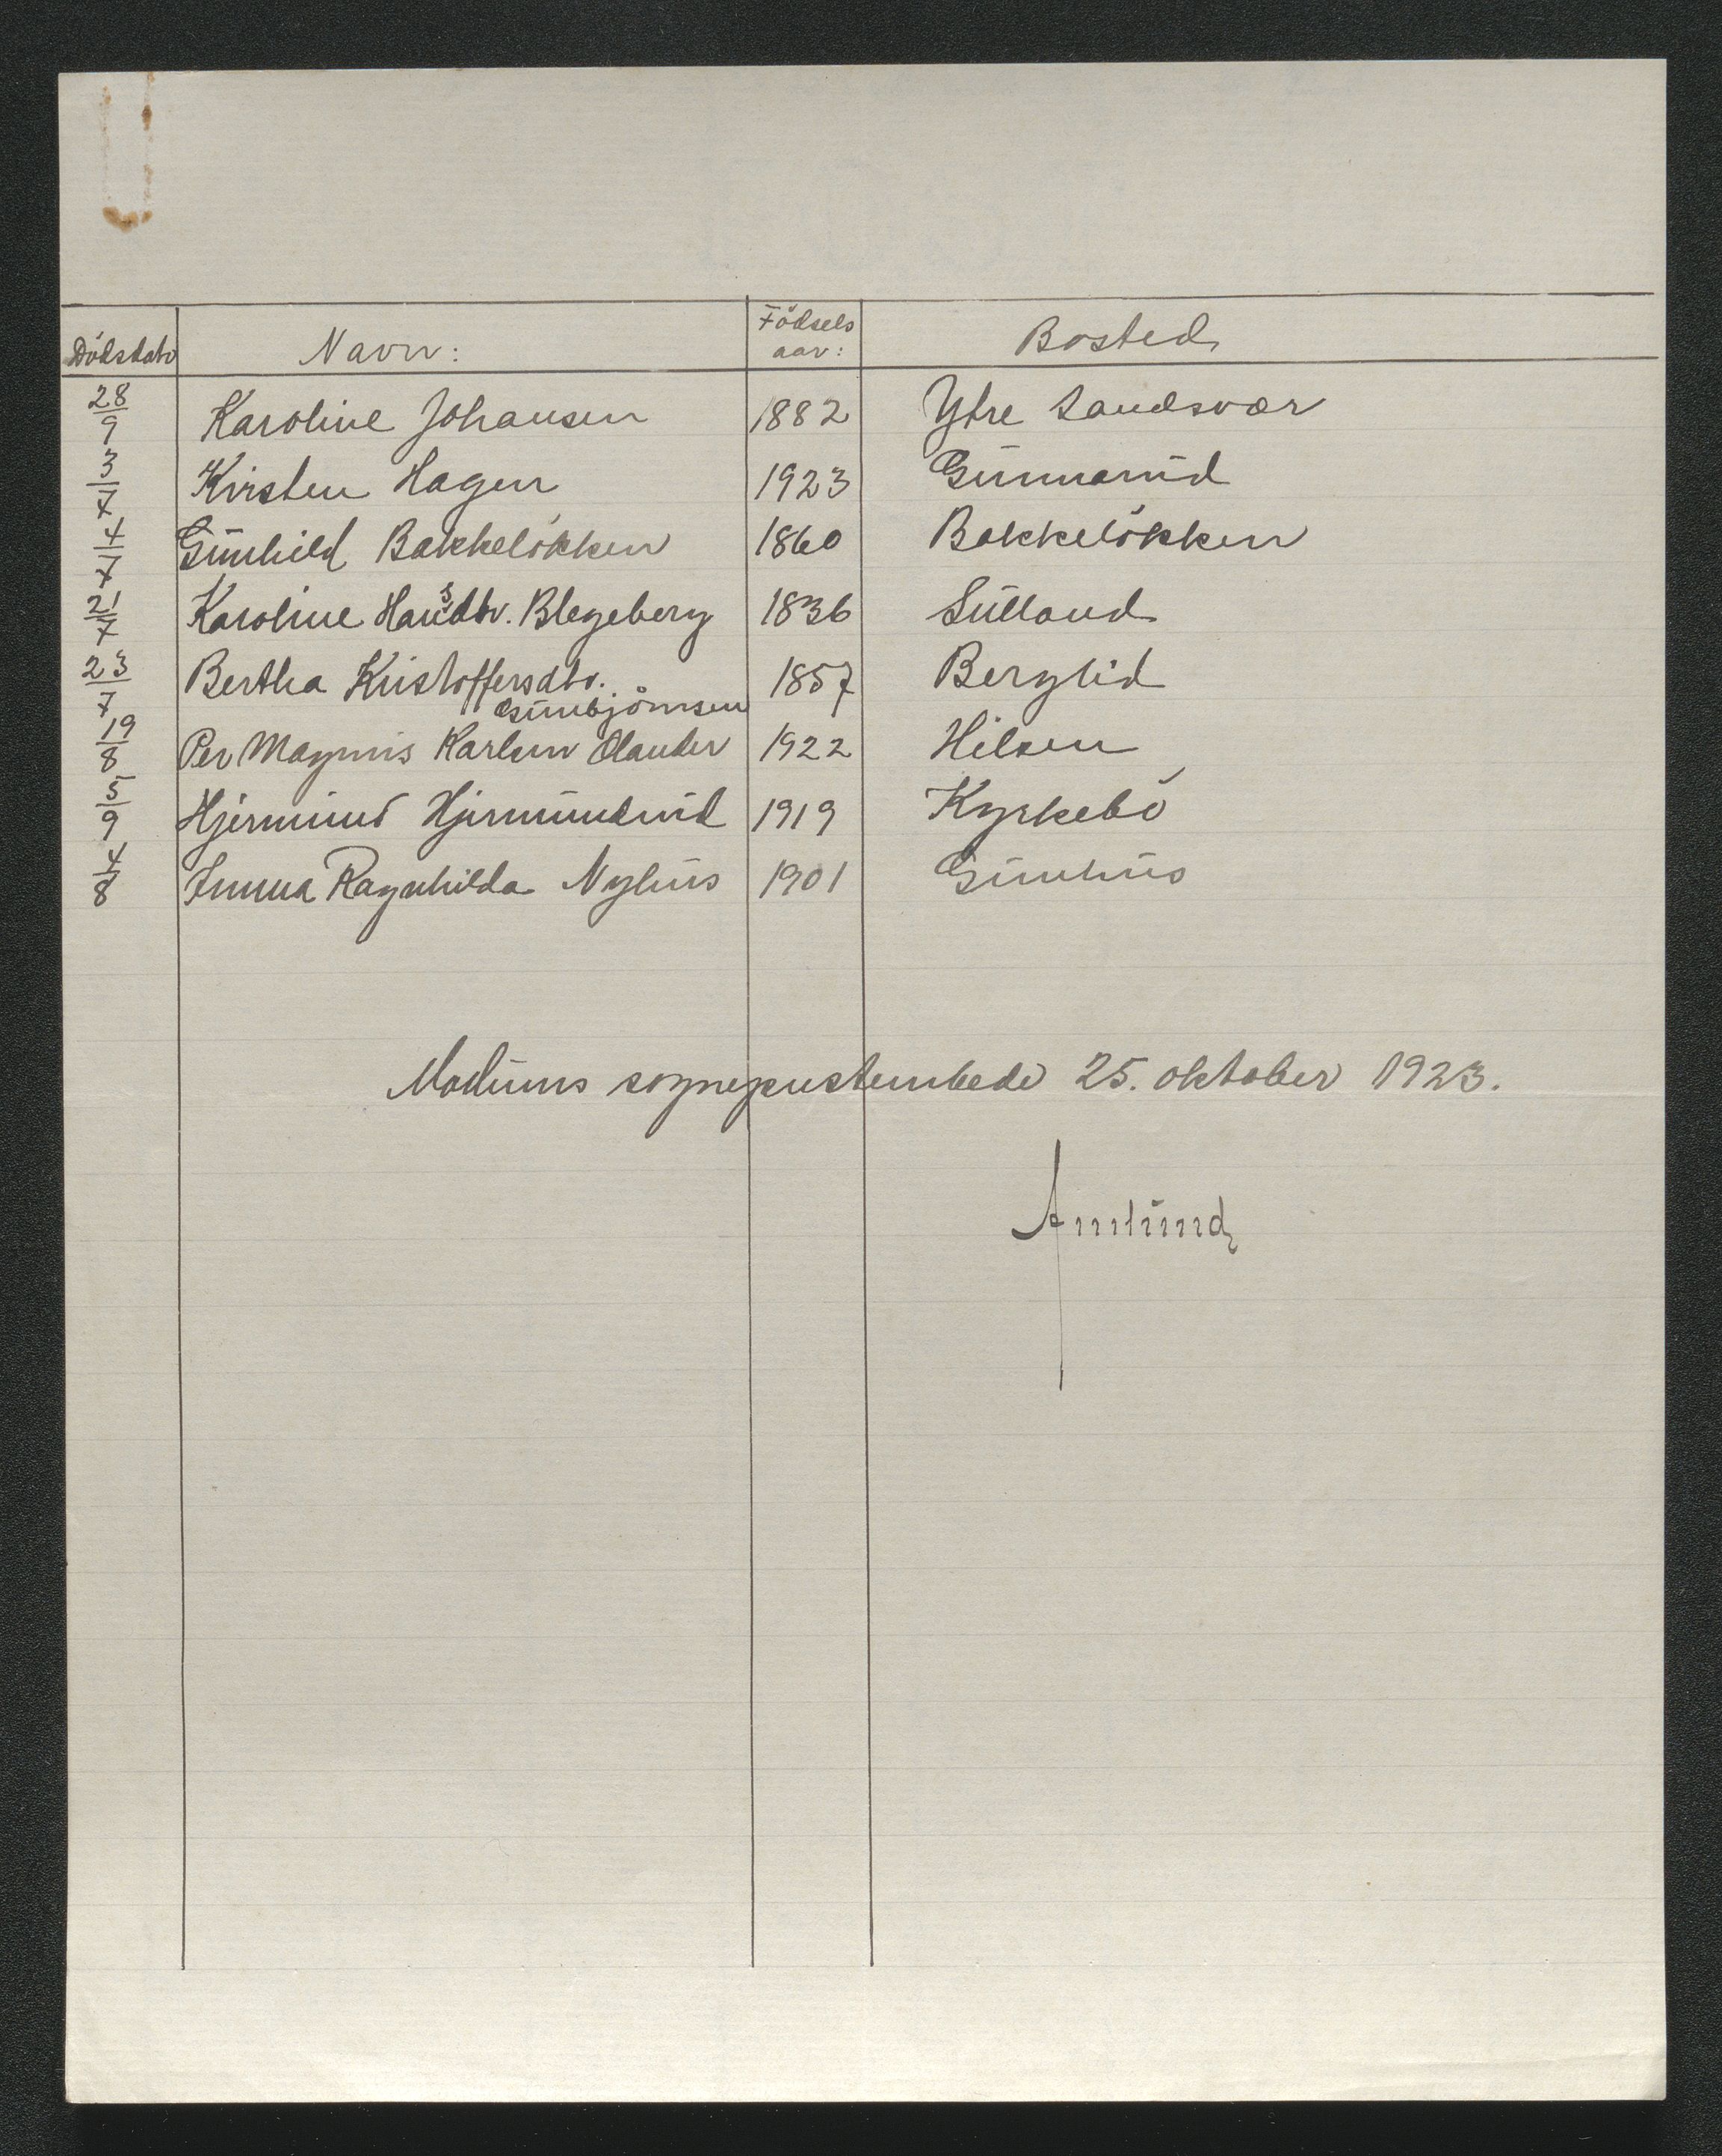 Dödsdato Navn: Födsels aar: Bosted
28/9 Karoline Johansen 1882 Ytre Sandsvær
3/7 Kirsten Hagen 1923 Gunnarud
4/7 Gunhild Bakkelökken 1860 Bakkelökken
21/7 Karoline Hansdtr. Blegeberg 1836 Sulland
23/7 Bertha Kristoffersdtr. 1857 Berglid
Gunbjörnsen
19/8 Per Magnus Karlsen Olander 1922 Hilsen
5/9 Hjermund Hjermundrud 1919 Kyrkebö
4/8 Ragnhilda Nyhus 1901 Gunhus
Modums sogneprestembede 25. oktober 1923.
Amlund